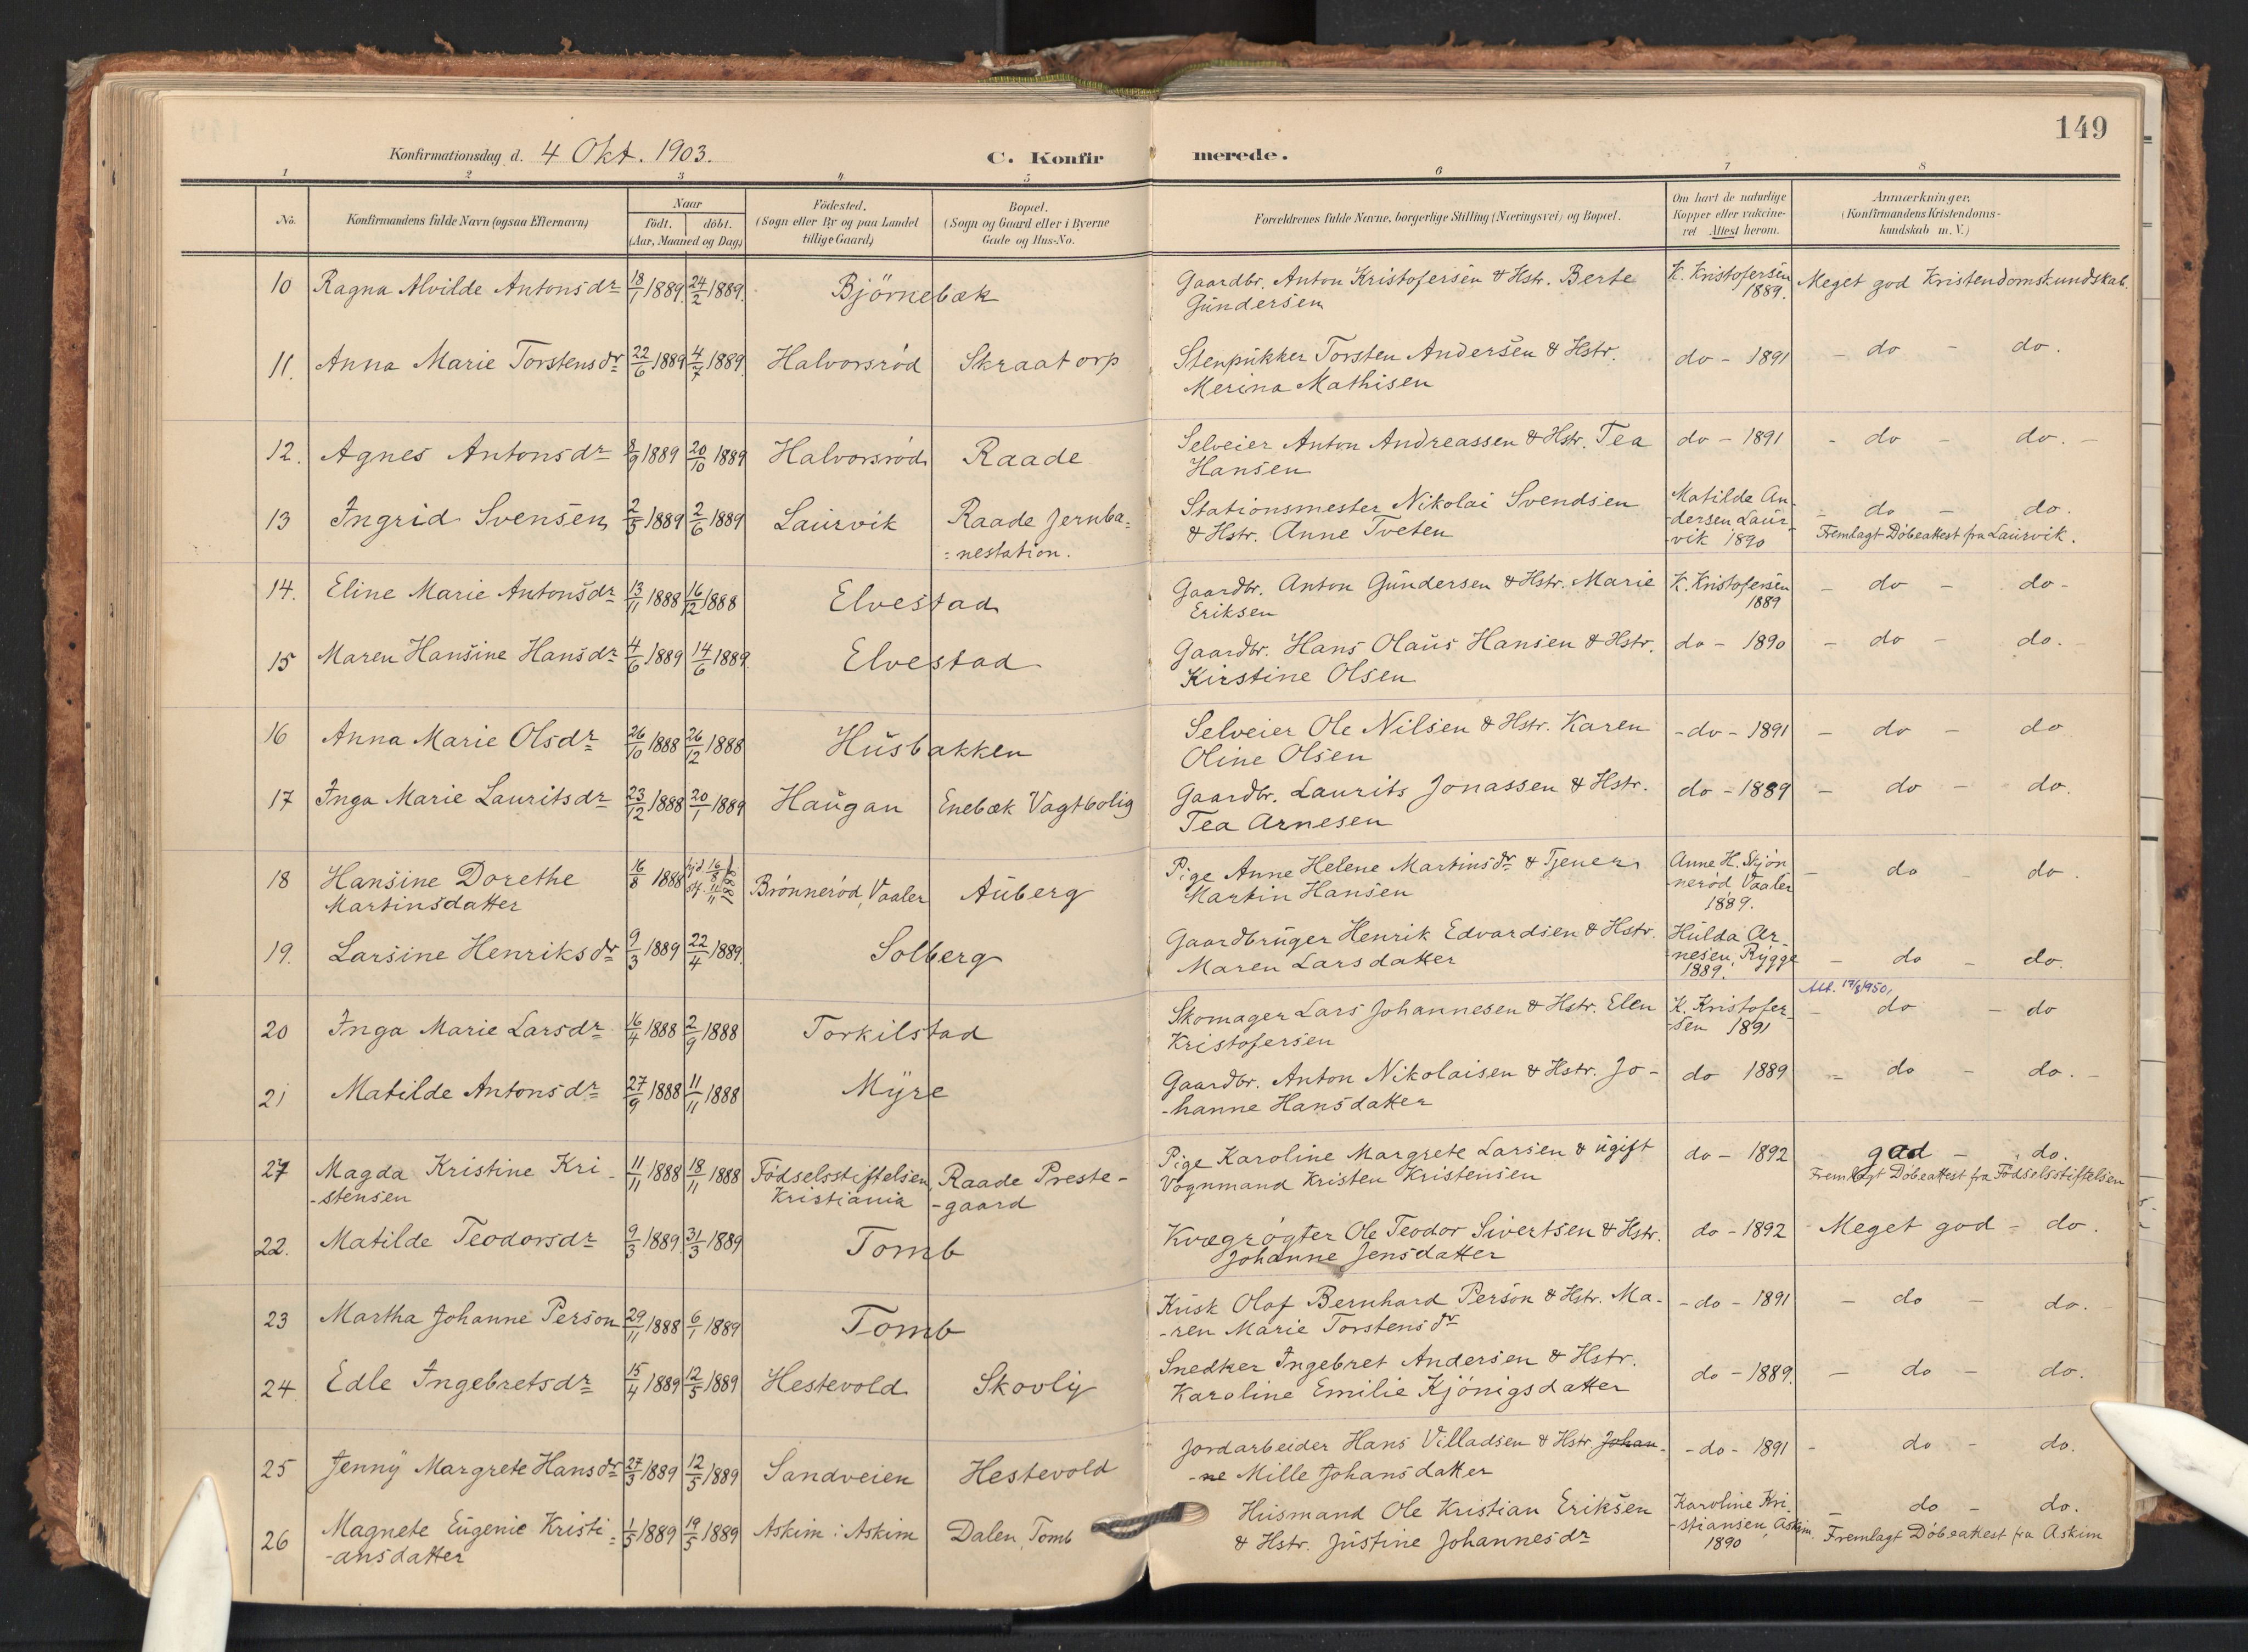 149
Konfirmationsdag d. 4 Okt. 1903. C. Konfirmerede.
1 2 3 4 5 6 7 8
No. Konfirmandens fulde Navn (ogsaa Efternavn) Naar født. døbt. (Aar, Maaned og Dag) Fødested. (Sogn eller By og paa Landet tillige Gaard) Bopæl. (Sogn og Gaard eller i Byerne Gade og Hus-No. Forældrenes fulde Navne, borgerlige Stilling (Næringsvei) og Bopæl. Om havt de naturlige Kopper eller vakcineret Attest herom. Anmærkninger. (Konfirmandens Kristendomskundskab m. V.)
10 Ragna Alvilde Antonsdr 18/1 1889. 24/2 1889. Björnebæk Gaardbr. Anton Kristofersen & Hstr. Berte K. Kristofersen Meget god Kristendomskundskab.
Gundersen 1889.
11. Anna Marie Torstensdr 22/6 1889 4/7 1889. Halvorsrød Skraatorp Stenpukker Torsten Andersen & Hstr. do - 1891 - do - do.
Merina Mathisen
12. Agnes Antonsdr 8/9 1889 20/10 1889 Halvorsrød Raade Selveier Anton Andreassen & Hstr. Tea do - 1891 - do - do. -
Hansen
13 Ingrid Svensen 2/5 1889 2/6 1889 Laurvik Raade Jernba= Stationsmester Nikolai Svendsen Matilde An- - do - do.
=nestation. & Hstr. Anne Tveten -dersen Laur- Fremlagt Døbeattest fra Laurvik.
-vik 1890
14. Eline Marie Antonsdr 13/11 1888 16/12 1888 Elvestad Gaardbr. Anton Gundersen & Hstr. Marie K. Kristofersen - do - do -
Eriksen 1889
15 Maren Hansine Hansdr 4/6 1889 14/6 1889 Elvestad Gaardbr. Hans Olaus Hansen & Hstr. do - 1890 - do - do. -
Kirstine Olsen
16 Anna Marie Olsdr 26/10 1888 26/12 1888 Husbakken Selveier Ole Nilsen & Hstr. Karen - do - 1891 - do - do
Oline Olsen
17 Inga Marie Lauritsdr 23/12 1888 20/1 1889 Haugan Enebæk Vagtbolig Gaardbr. Laurits Jonassen & Hstr. do - 1889 - do - do.
Tea Arnesen
18 Hansine Dorethe 16/8 1888 hjd. 16/8 stf. 11/11 1888 Brønnerød, Vaaler Auberg Pige Anne Helene Martinsdr & Tjener Anne H. Skjøn - do - do.
Martinsdatter Martin Hansen -nerød, Vaaler
1889.
19. Larsine Henriksdr 9/3 1889 22/4 1889. Solberg Gaardbruger Henrik Edvardsen & Hstr. Hulda Ar-
Maren Larsdatter -nesen, Rygge - do - do.
1889.
Att. 17/8 1950,
20 Inga Marie Larsdr 16/4 1888 2/9 1888 Torkilstad Skomager Lars Johannesen & Hstr. Elen K. Kristofer- - do - do
Kristofersen -sen 1891
21 Matilde Antonsdr 27/9 1888 11/11 1888 Myre Gaardbr. Anton Nikolaisen & Hstr. Jo- do 1889 - do - do. -
-hanne Hansdatter
27 Magda Kristine Kri- 11/11 1888 18/11 1888 Fødselsstiftelsen, Raade Preste- Pige Karoline Margrete Larsen & ugift do - 1892 god - do.
-stensen Kristiania -gaard Vognmand Kristen Kristensen Fremlagt Døbeattest fra Fødselsstiftelsen
22. Matilde Teodorsdr 9/3 1889 31/3 1889 Tomb Kvægrøgter Ole Teodor Sivertsen & Hstr. do - 1892 - Meget god - do.
Johanne Jensdatter
23 Martha Johanne Person 29/11 1888 6/1 1889 Tomb Kusk Olaf Bernhard Person & Hstr. Ma- - do - 1891 - do - do.
-ren Marie Torstensdr
24 Edle Ingebretsdr 15/4 1889 12/5 1889 Hestevold Skovly Snedker Ingebret Andersen & Hstr. do - 1889. - do - do.
Karoline Emilie Kjønigsdatter
25 Jenny Margrete Hansdr 27/3 1889 12/5 1889 Sandveien Hestevold Jordarbeider Hans Villadsen & Hstr. Johan- - do - 1891 - do - do.
-ne Mille Johansdatter
26 Magnete Eugenie Kristi= 1/5 1889 19/5 1889 Askim i Askim Dalen, Tomb Husmand Ole Kristian Eriksen Karoline Kri- - do - do.
-ansdatter & Hstr. Justine Johannesdr -stiansen, Askim. Fremlagt Døbeattest fra Askim
1890